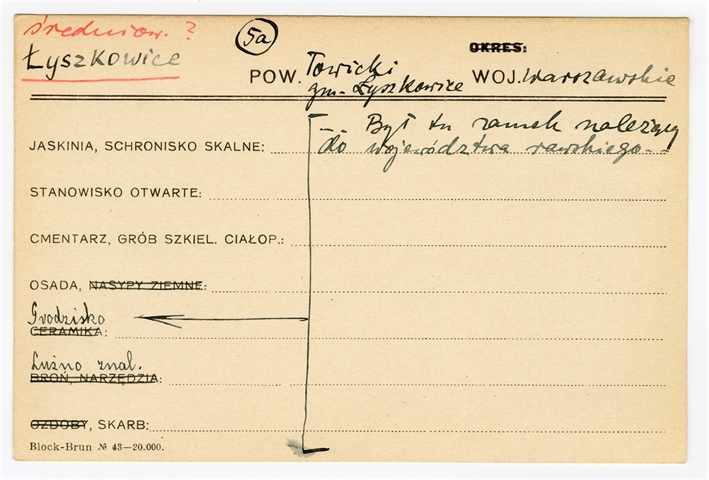 średniow. ?
Łyszkowice
5a
OKRES:
POW. Łowicki
gm. Łyszkowice
WOJ. warszawskie
JASKINIA, SCHRONISKO SKALNE:
"... Był tu zamek należący
do województwa rawskiego..
STANOWISKO OTWARTE:
CMENTARZ, GRÓB SZKIEL. CIAŁOP.:
OSADA, NASYPY ZIEMNE:
Grodzisko
CERAMIKA:
Luźno znal.
BROŃ, NARZĘDZIA:
OZDOBY, SKARB:
Block-Brun № 43—20.000.